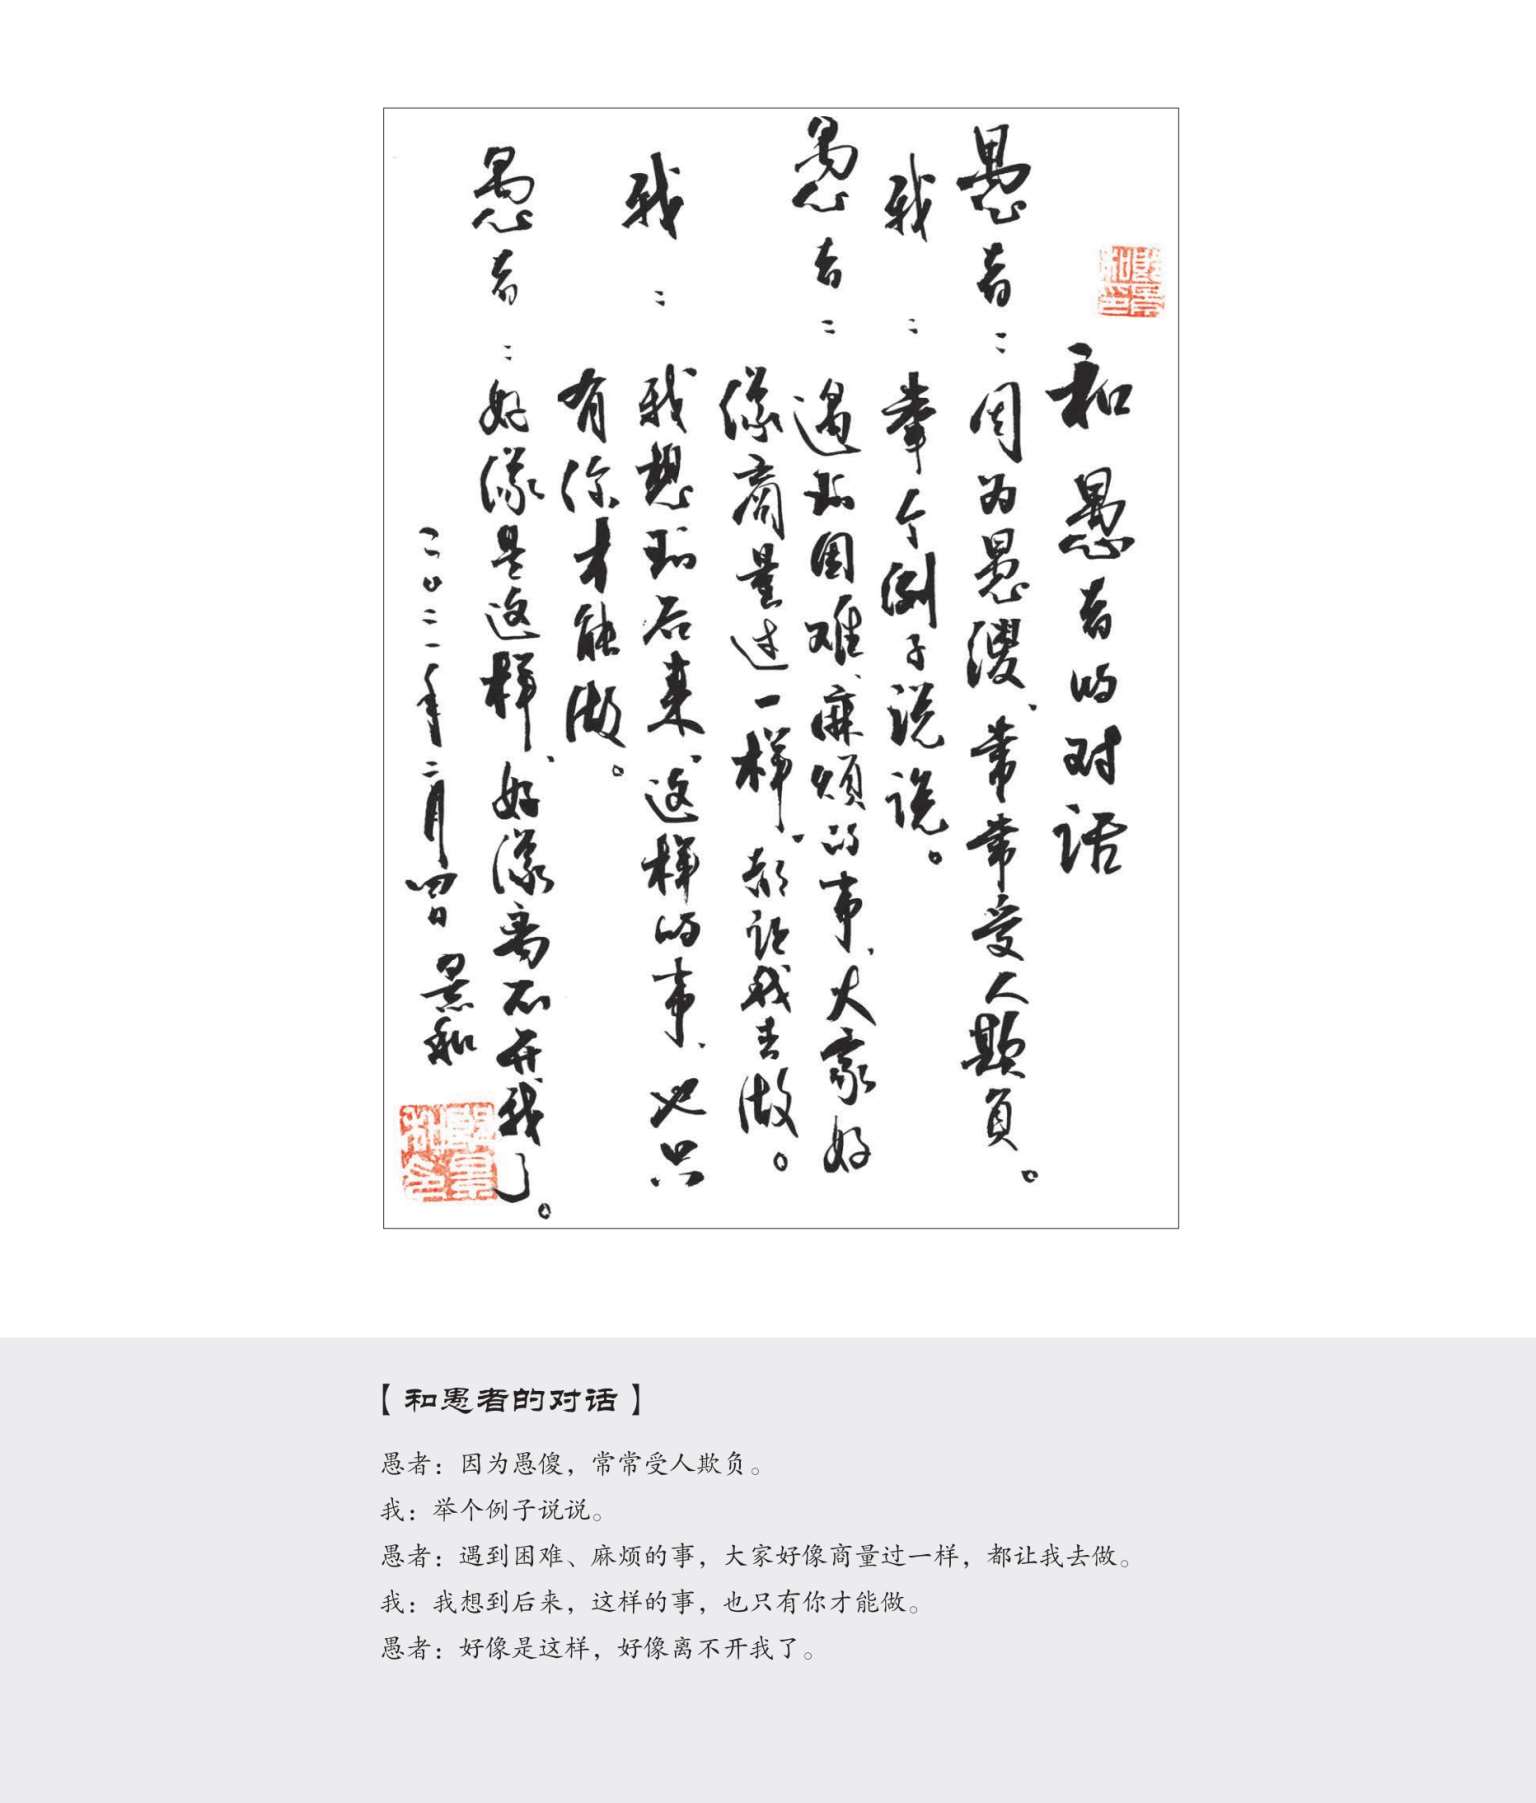 和愚者的对话
愚者：因为愚傻、常常受人欺负。
我：举个例子说说。
愚者：遇到困难、麻烦的事、大家好
像商量过一样、都让我去做。
我：我想到后来、这样的事、也只
有你才能做。
愚者：好像是这样、好像离不开我了。
二〇二一年二月四日 景和
【和愚者的对话】
愚者：因为愚傻，常常受人欺负。
我：举个例子说说。
愚者：遇到困难、麻烦的事，大家好像商量过一样，都让我去做。
我：我想到后来，这样的事，也只有你才能做。
愚者：好像是这样，好像离不开我了。